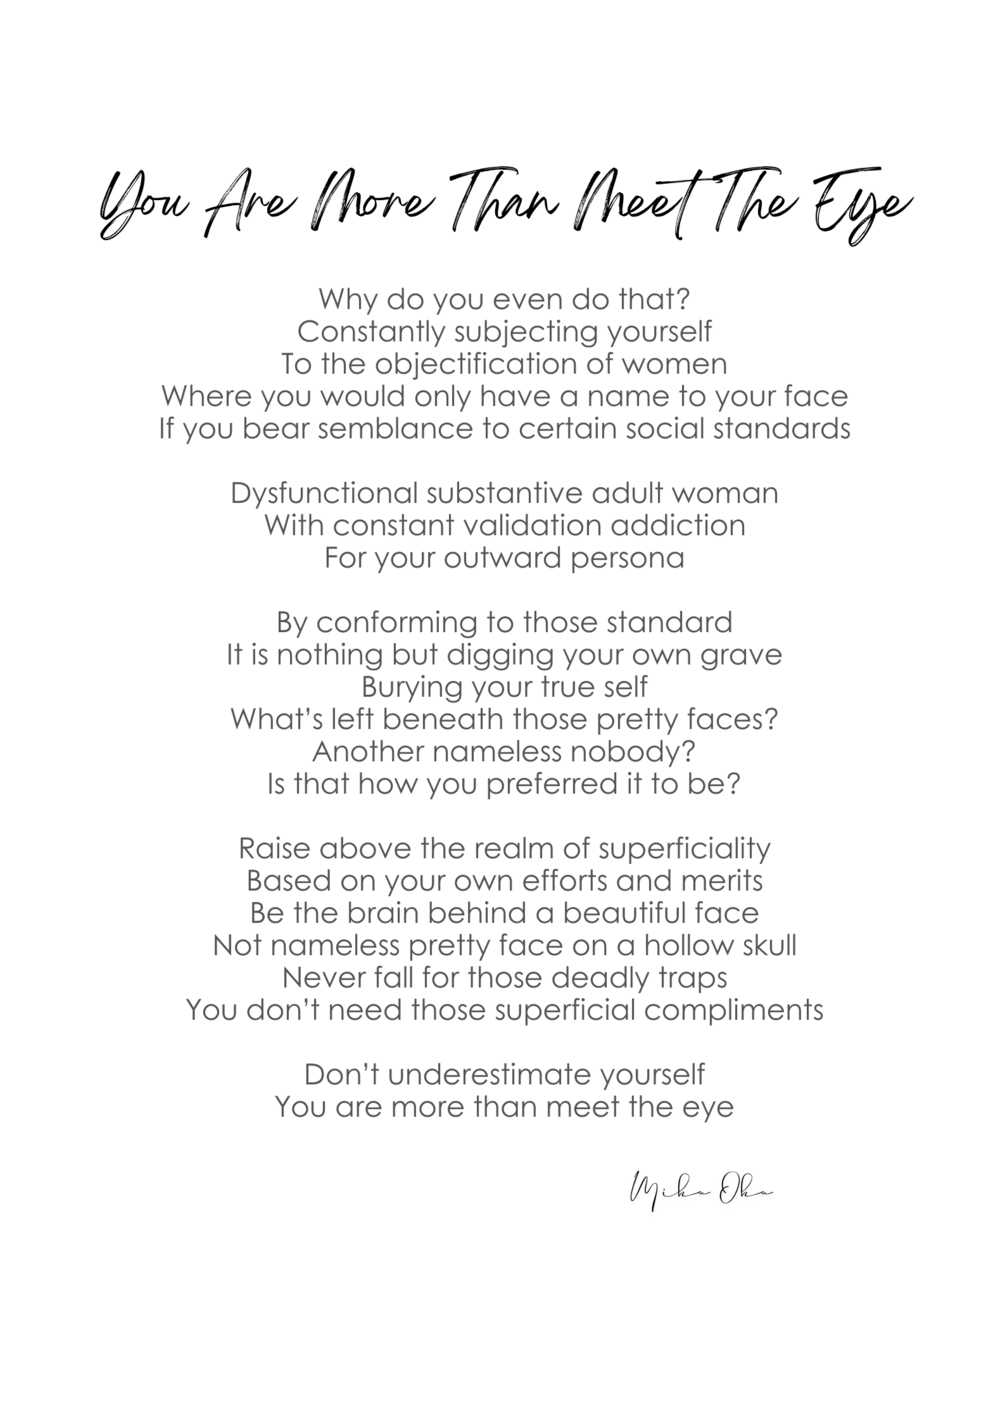 You Are More Than Meet The Eye
Why do you even do that?
Constantly subjecting yourself
To the objectification of women
Where you would only have a name to your face
If you bear semblance to certain social standards
Dysfunctional substantive adult woman
With constant validation addiction
For your outward persona
By conforming to those standard
It is nothing but digging your own grave
Burying your true self
What’s left beneath those pretty faces?
Another nameless nobody?
Is that how you preferred it to be?
Raise above the realm of superficiality
Based on your own efforts and merits
Be the brain behind a beautiful face
Not nameless pretty face on a hollow skull
Never fall for those deadly traps
You don’t need those superficial compliments
Don’t underestimate yourself
You are more than meet the eye
Mika Oka